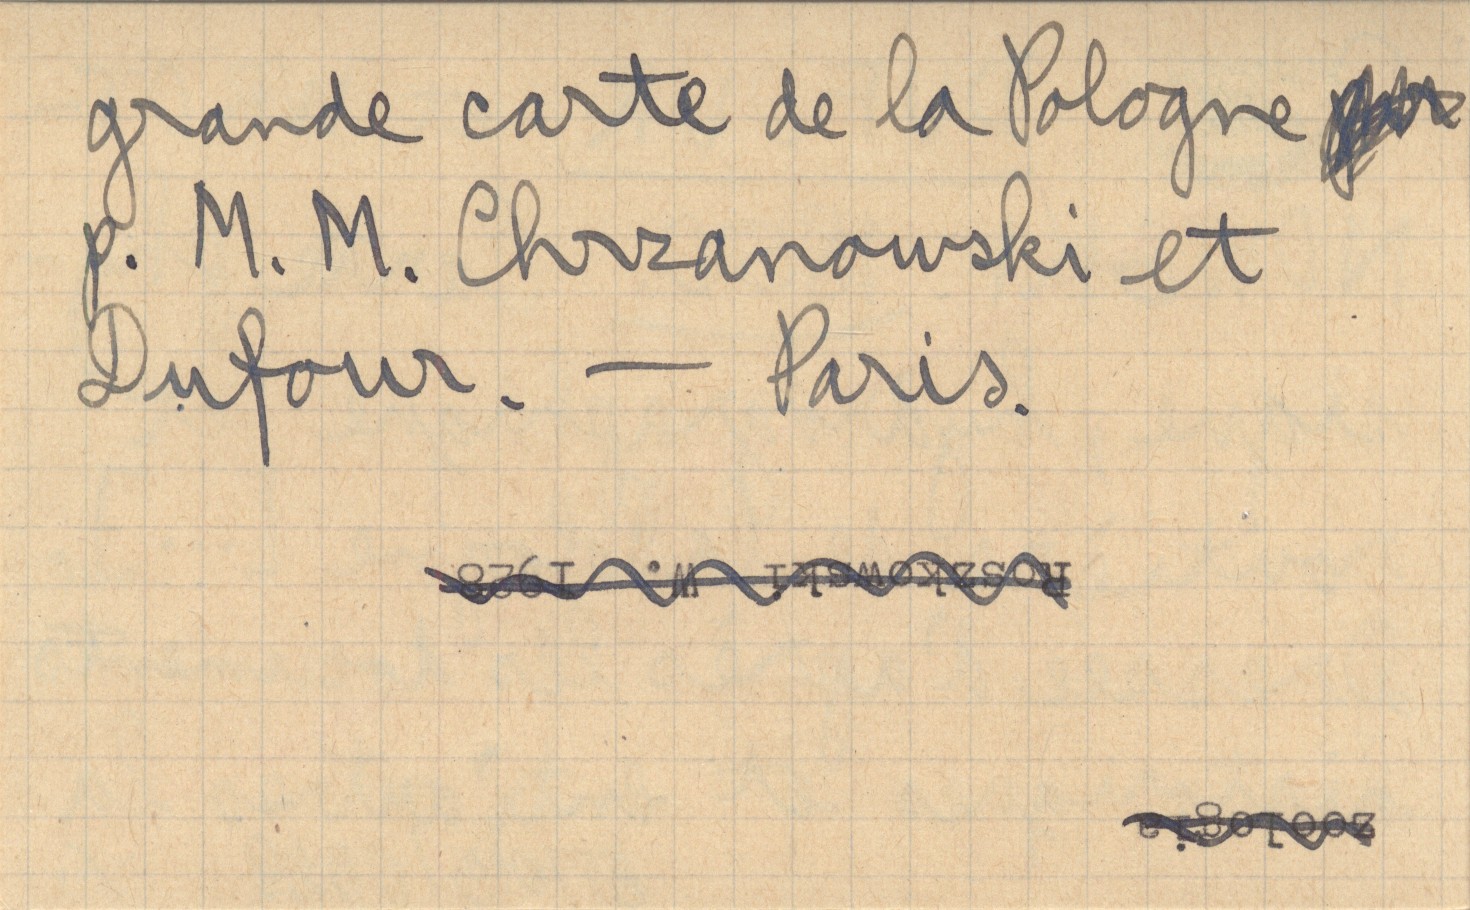 grande carte de la Pologne
p. M. M. Chrzanowski et
Dufour. — Paris.
Roszkowski W. 1928
zoologia